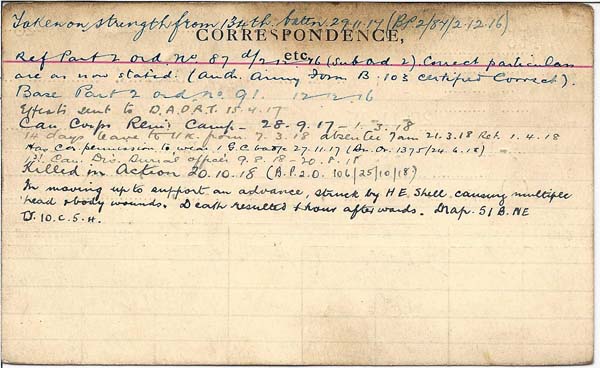 Taken on strength from 134th battn 29.11.17 (B.P.2/87/2.12.16)
CORRESPONDENCE,
etc.
Ref Part 2 ord. No. 87 d/2.12.16 (sub ad 2). Correct particulars
are as now stated. (Auth. Army Form B. 103 certified Correct).
Base Part 2 ord No 91. 12.12.16
Effects sent to D.A.D.R.T. 15.4.17
Can Corps Rein's Camp - 28.9.17 1.3.18
14 days leave to U.K. from 7.3.18 absentee 7am 21.3.18 Ret. 1.4.18
Has Cor. permission to wear 1 G.C. badge 27.11.17 (Bn. Or. 1375/24.6.18)
1st Can. Div. Burial officer 9.8.18 - 20.8.18
Killed in Action 20.10.18 (B.P.2.O. 106/25/10/18)
In moving up to support an advance, struck by H.E. Shell, causing multiple
head & body wounds. Death resulted 1 hour afterwards. Map. 51 B. NE
10.C.5.4.